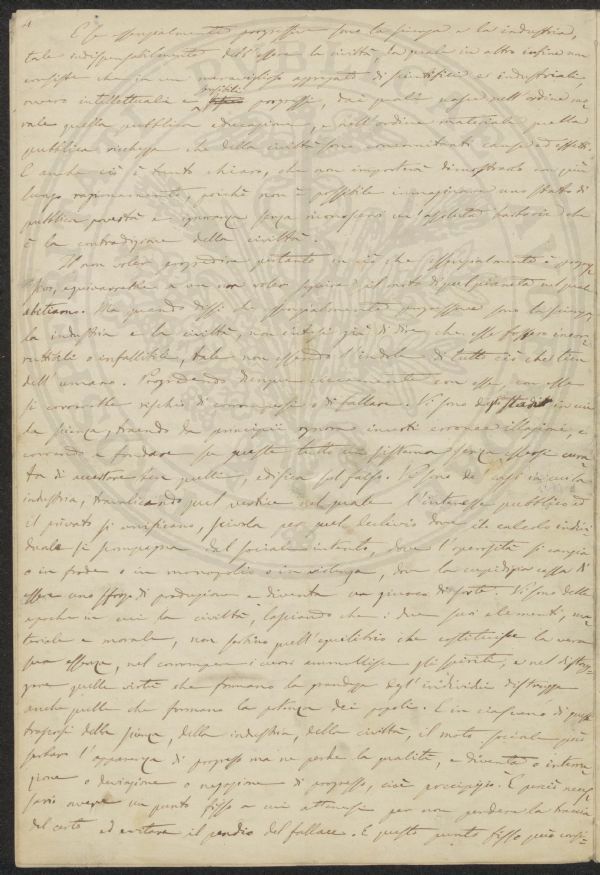 4
E se essenzialmente progressive sono la scienza e la industria,
tale indispensabilmente dev'essere la civiltà, la quale in altro infine non
consiste che in un maraviglioso aggregato di scientifici e industriali,
ovvero intellettuali e positivi progressi, dai quali nasce nell'ordine mo-
rale quella pubblica educazione, e nell'ordine materiale quella
pubblica ricchezza che della civiltà sono concomitanti cause ed effetti.
E anche ciò è tanto chiaro, che non importerà dimostrarlo con più
lungo ragionamento, poichè non è possibile immaginare uno stato di
pubblica povertà e ignoranza senza riconoscervi un'assoluta barbarie che
è la contradizione della civiltà.
Il non voler progredire pertanto in ciò che essenzialmente è progres-
sivo, equivarrebbe a un non voler seguire il moto di quel pianeta nel quale
abitiamo. Ma quando dissi che essenzialmente progressive sono la scienza,
la industria e la civiltà, non intesi già di dire che esse fossero incor-
ruttibili o infallibili, tale non essendo l'indole di tutto ciò che tien
dell'umano. Progredendo dunque ciecamente con esse, con esse
si correrebbe rischio di corrompersi o di fallare. Vi sono de' stadii in cui
la scienza, traendo da principii ignoti incerti erronee illazioni, e
correndo a fondare su queste tutto un sistema senza essersi cura-
ta di accertare ben quelli, edifica sul falso. Vi sono de' casi in cui la
industria, travalicando quel vertice nel quale l'interesse pubblico ed
il privato si unificano, scivola per quel declivio dove il calcolo indivi-
duale si scompagna dal sociale intento, dove l'operosità si cangia
o in frode o in monopolio o in violenza, dove la cupidigia cessa di
essere uno sforzo di produzione e diventa un giuoco di sorte. Vi sono delle
epoche in cui la civiltà, lasciando che i due suoi elementi, ma-
teriale e morale, non serbino quell'equilibrio che costituisce la vera
sua essenza, nel corrompere i cuori ammollisce gli spiriti, e nel distrug-
gere quelle virtù che formano la grandezza degl'individui distrugge
anche quelle che formano la potenza dei popoli. E in ciascuno di questi
trascorsi della scienza, della industria, della civiltà, il moto sociale può
serbare l'apparenza di progresso ma ne perde la qualità, e diventa o interru-
zione o deviazione o negazione di progresso, cioè precipizio. È perciò neces-
sario avere un punto fisso a cui attenersi per non perdere la traccia
del certo ed evitare il pendio del fallace. E questo punto fisso può consi-